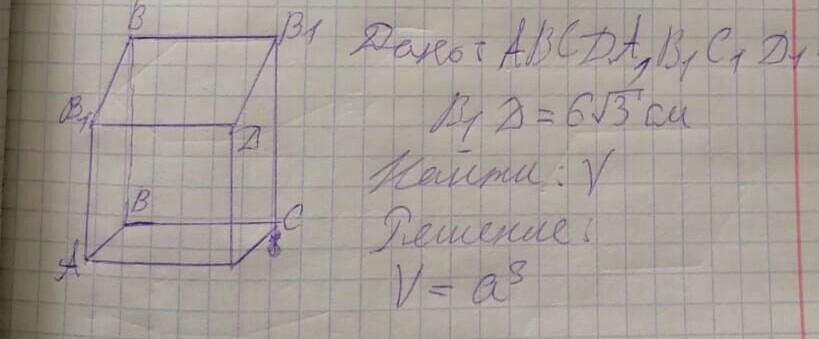 B
B1
B1
D
B
C
A
Дано: ABCDA1B1C1D1
B1D=6√3 см
Найти: V
Решение:
V = a³